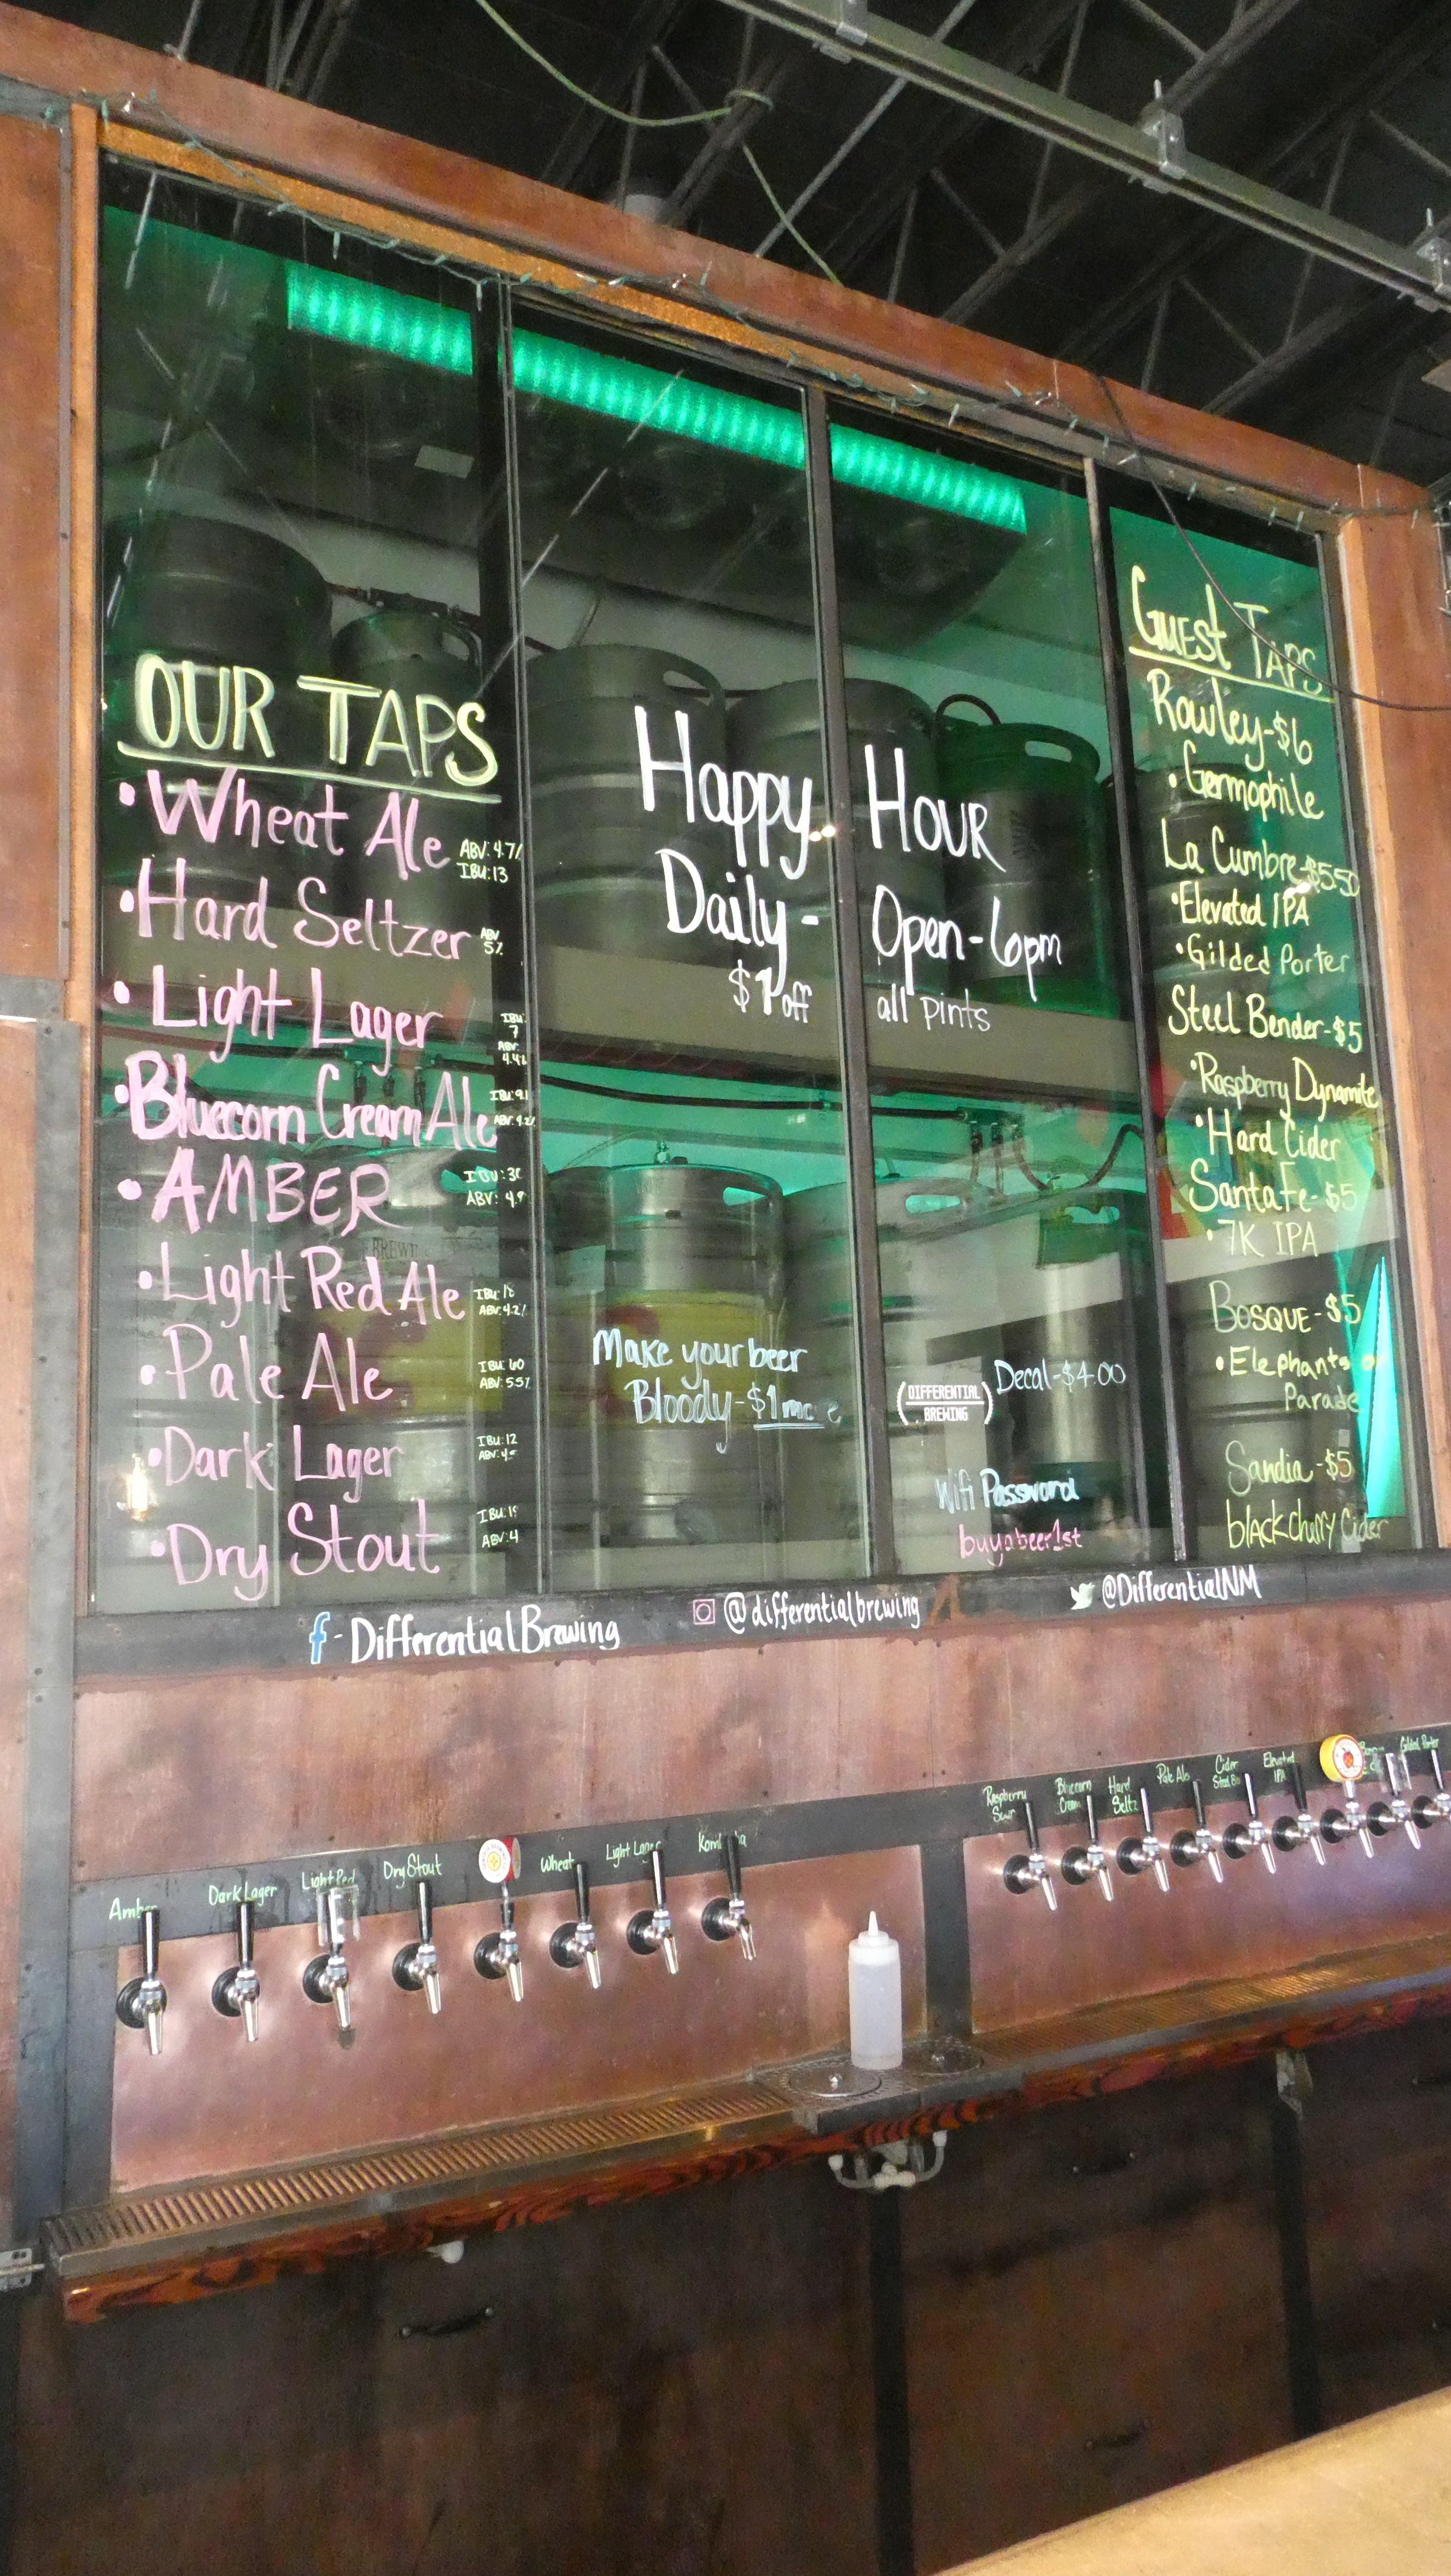 OUR TAPS
• Wheat Ale
ABV: 4.7%
IBU: 13
• Hard Seltzer
ABV
5%
• Light Lager
IBU:
7
ABV:
4.4%
• Bluecorn Cream Ale
IBU: 9.1
ABV: 4.2%
• AMBER
ABV: 4.9
• Light Red Ale
ABV: 4.2%
• Pale Ale
IBU: 60
ABV: 5.5%
• Dark Lager
IBU: 12
• Dry Stout
ABV: 4
Happy Hour
Daily - Open-6pm
$1 off all pints
Make your beer
Bloody - $1 more
Decal - $4.00
DIFFERENTIAL
BREWING
Wifi Password
buyabeer1st
Guest Taps
Rowley - $6
• Germophile
La Cumbre - $5.50
• Elevated IPA
• Gilded Porter
Steel Bender - $5
• Raspberry Dynamite
• Hard Cider
Santa Fe - $5
• 7K IPA
BOSQUE - $5
• Elephants on
Parade
Sandia - $5
blackcherry Cider
f - DifferentialBrewing
@differentialbrewing
@DifferentialNM
Amber
Dark Lager
Light Red
Dry Stout
Wheat
Light Lager
Raspberry
Sour
Bluecorn
Cream
Hard
Seltz
Pale Ale
Cider
Elevated
IPA
Gilded Porter